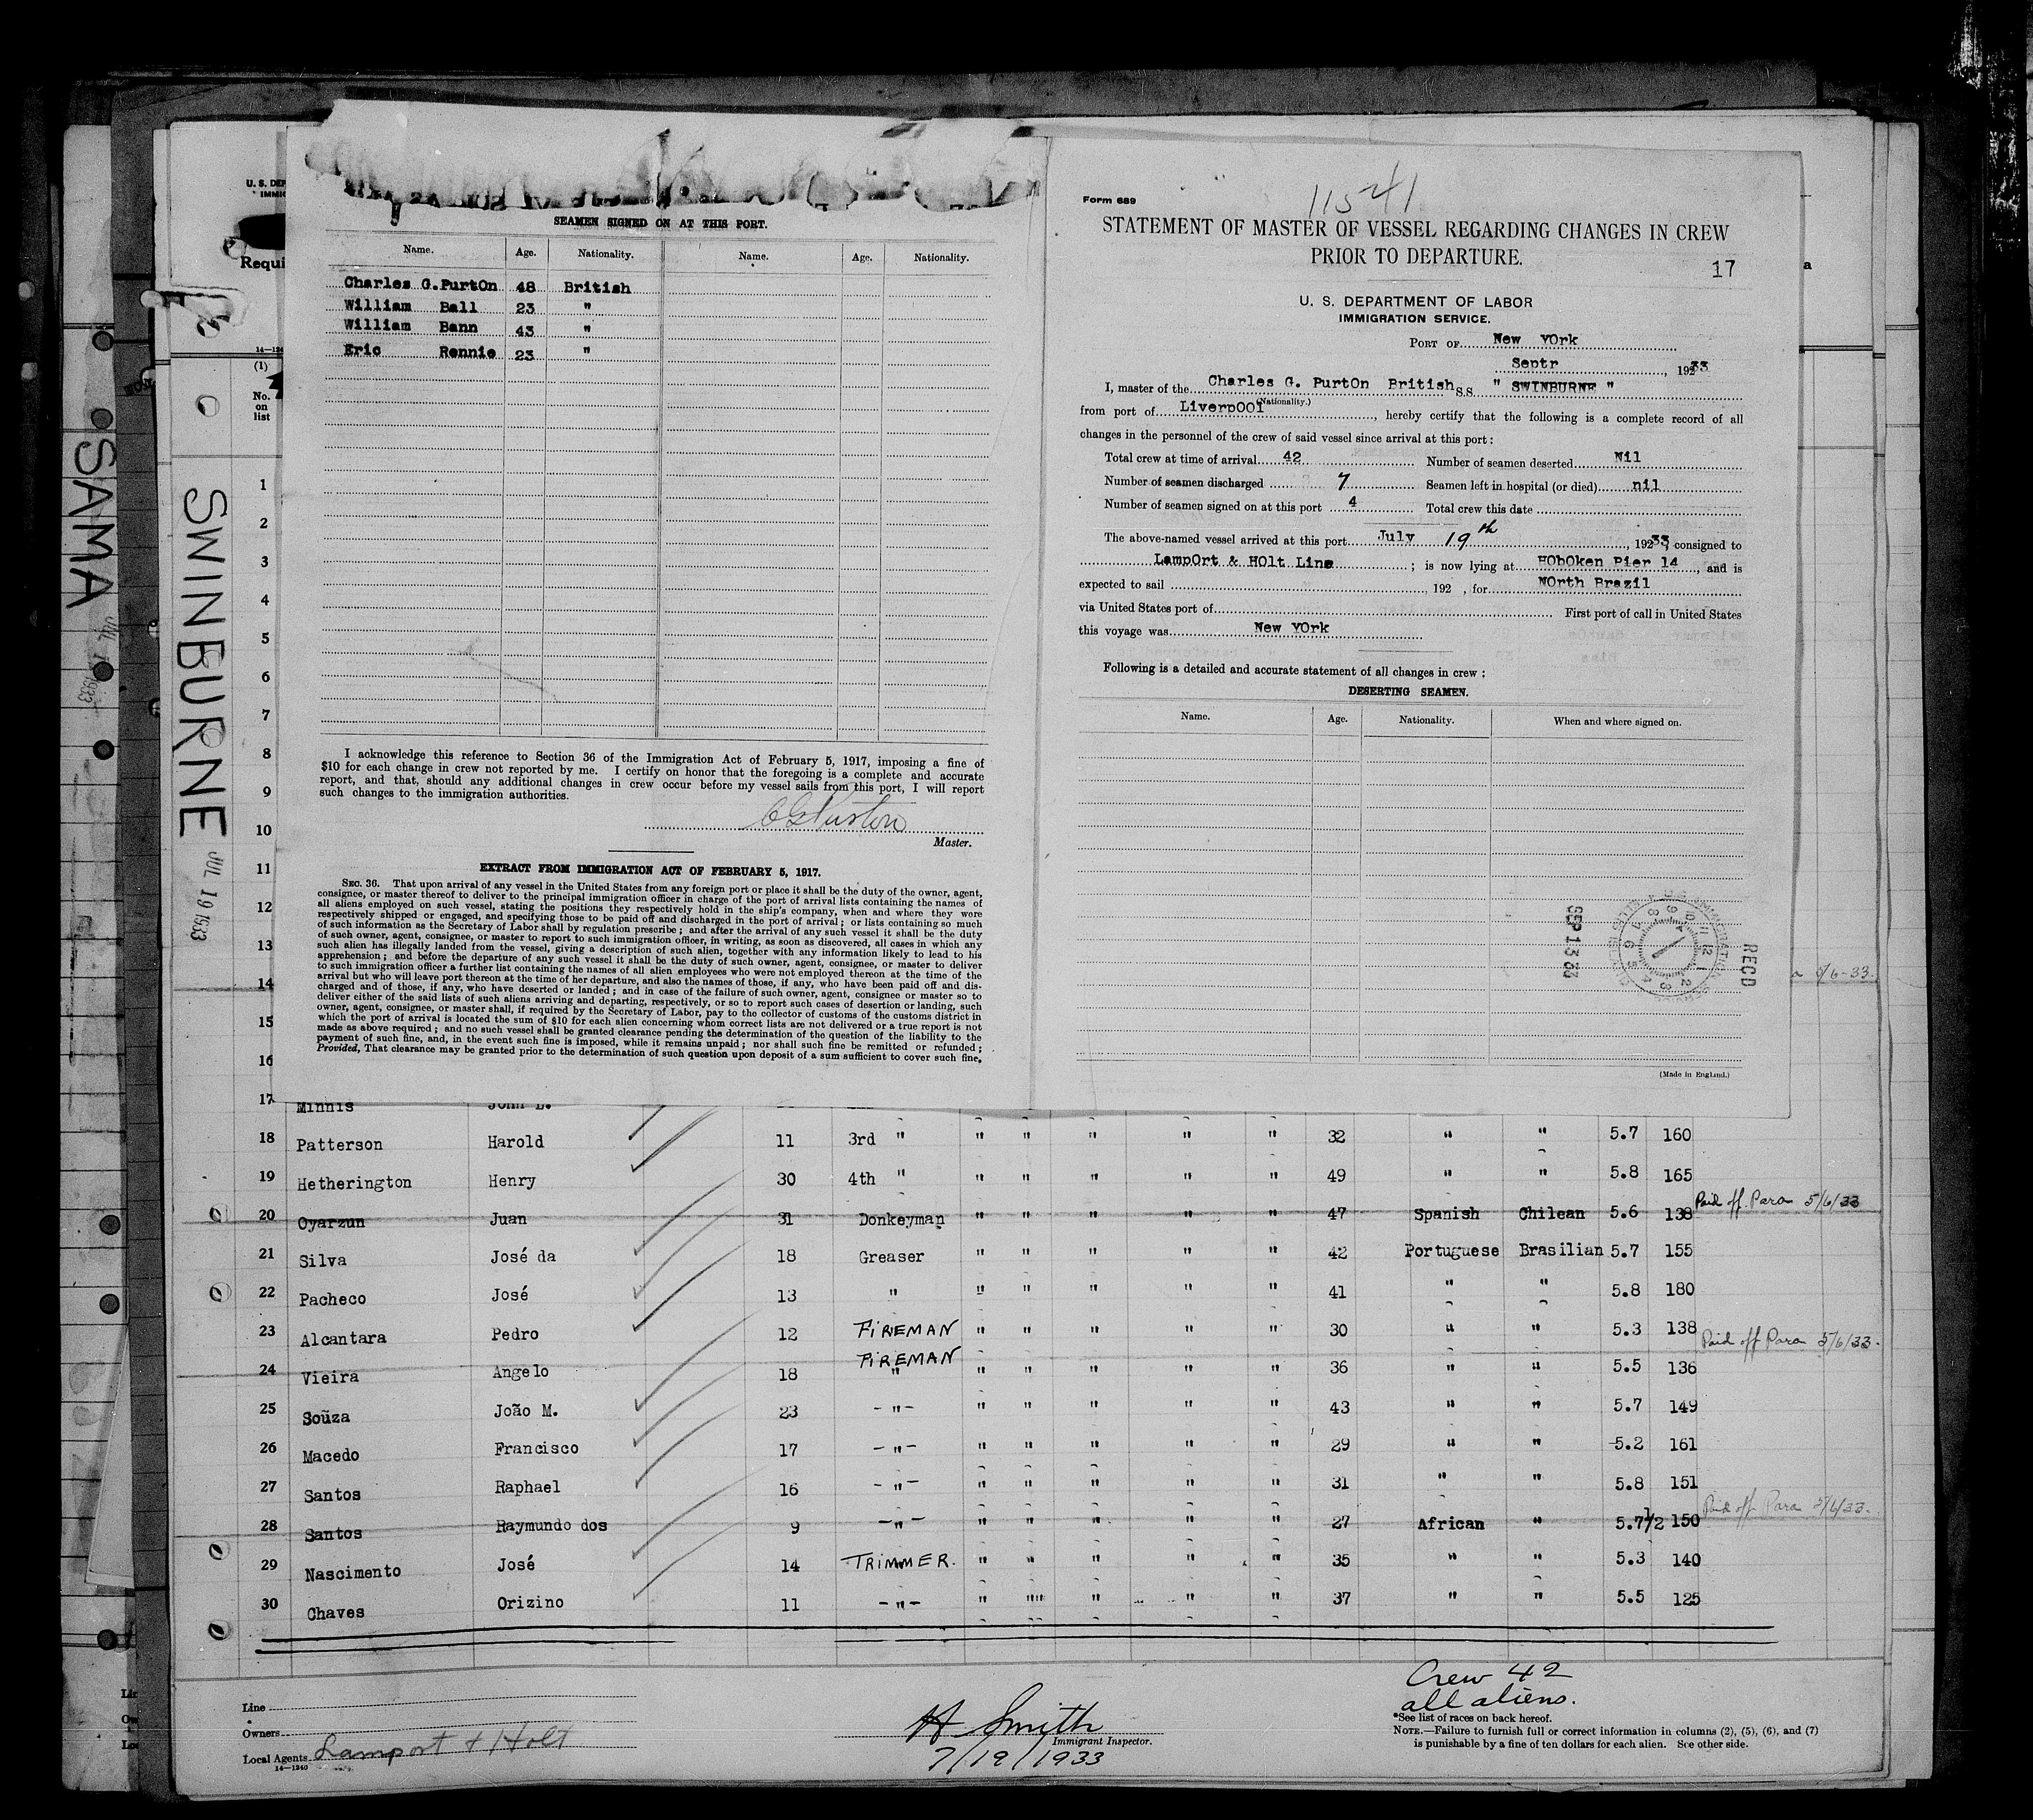 SEAMEN SIGNED ON AT THIS PORT.
Name. Age. Nationality. Name. Age. Nationality.
Charles G.PurtOn 48 British
William Ball 23 "
William Bann 43 "
Eric Rennie 23 "
I acknowledge this reference to Section 36 of the Immigration Act of February 5, 1917, imposing a fine of
$10 for each change in crew not reported by me. I certify on honor that the foregoing is a complete and accurate
report, and that, should any additional changes in crew occur before my vessel sails from this port, I will report
such changes to the immigration authorities.
CG Purton
Master.
EXTRACT FROM IMMIGRATION ACT OF FEBRUARY 5, 1917.
SEC. 36. That upon arrival of any vessel in the United States from any foreign port or place it shall be the duty of the owner, agent,
consignee, or master thereof to deliver to the principal immigration officer in charge of the port of arrival lists containing the names of
all aliens employed on such vessel, stating the positions they respectively hold in the ship's company, when and where they were
respectively shipped or engaged, and specifying those to be paid off and discharged in the port of arrival; or lists containing so much
of such information as the Secretary of Labor shall by regulation prescribe; and after the arrival of any such vessel it shall be the duty
of such owner, agent, consignee, or master to report to such immigration officer, in writing, as soon as discovered, all cases in which any
such alien has illegally landed from the vessel, giving a description of such alien, together with any information likely to lead to his
apprehension; and before the departure of any such vessel it shall be the duty of such owner, agent, consignee, or master to deliver
to such immigration officer a further list containing the names of all alien employees who were not employed thereon at the time of the
arrival but who will leave port thereon at the time of her departure, and also the names of those, if any, who have been paid off and dis-
charged and of those, if any, who have deserted or landed; and in case of the failure of such owner, agent, consignee or master so to
deliver either of the said lists of such aliens arriving and departing, respectively, or so to report such cases of desertion or landing, such
owner, agent, consignee, or master shall, if required by the Secretary of Labor, pay to the collector of customs of the customs district in
which the port of arrival is located the sum of $10 for each alien concerning whom correct lists are not delivered or a true report is not
made as above required; and no such vessel shall be granted clearance pending the determination of the question of the liability to the
payment of such fine, and, in the event such fine is imposed, while it remains unpaid; nor shall such fine be remitted or refunded;
Provided, That clearance may be granted prior to the determination of such question upon deposit of a sum sufficient to cover such fine.
Form 689
11541
STATEMENT OF MASTER OF VESSEL REGARDING CHANGES IN CREW
PRIOR TO DEPARTURE.
17
U. S. DEPARTMENT OF LABOR
IMMIGRATION SERVICE.
PORT OF New YOrk
Septr , 19233
I, master of the Charles G. PurtOn British S.S. " SWINBURNE "
(Nationality.)
from port of LiverpOOl , hereby certify that the following is a complete record of all
changes in the personnel of the crew of said vessel since arrival at this port:
Total crew at time of arrival 42 Number of seamen deserted Nil
Number of seamen discharged 7 Seamen left in hospital (or died) nil
Number of seamen signed on at this port 4 Total crew this date
The above-named vessel arrived at this port July 19th , 19233, consigned to
LampOrt & HOlt Line ; is now lying at HObOken Pier 14 , and is
expected to sail , 192 , for NOrth Brazil
via United States port of First port of call in United States
this voyage was New YOrk
Following is a detailed and accurate statement of all changes in crew:
DESERTING SEAMEN.
Name. Age. Nationality. When and where signed on.
SEP 13 33
RECD
(Made in England.)
U. S. DEP
IMMIG
Requi
a
14—124
(1)
No.
on
list
SAMA
1933
SWINBURNE
JUL 19 1933
1
2
3
4
5
6
7
8
9
10
11
12
13
14
15
16
5/6-33.
17 Minnis John L.
18 Patterson Harold 11 3rd " " " " " " 32 " " 5.7 160
19 Hetherington Henry 30 4th " " " " " " 49 " " 5.8 165
20 Oyarzun Juan 31 Donkeyman " " " " " 47 Spanish Chilean 5.6 138 Paid off Para 5/6/33
21 Silva José da 18 Greaser " " " " " 42 Portuguese Brasilian 5.7 155
22 Pacheco José 13 " " " " " " 41 " " 5.8 180
23 Alcantara Pedro 12 FIREMAN " " " " " 30 " " 5.3 138
24 Vieira Angelo 18 FIREMAN " " " " " " 36 " " 5.5 136 Paid off Para 5/6/33.
25 Soũza João M. 23 -"- " " " " " 43 " " 5.7 149
26 Macedo Francisco 17 -"- " " " " " 29 " " 5.2 161
27 Santos Raphael 16 -"- " " " " " 31 " " 5.8 151
28 Santos Raymundo dos 9 -"- " " " " " 27 African " 5.7 1/2 150 Paid off Para 5/6/33.
29 Nascimento José 14 TRIMMER. " " " " " 35 " " 5.3 140
30 Chaves Orizino 11 -"- " "" " " " 37 " " 5.5 125
Line
Owners
Local Agents Lamport & Holt
14—1240
H Smith
Immigrant Inspector.
7/19/1933
Crew 42
all aliens.
*See list of races on back hereof.
NOTE.—Failure to furnish full or correct information in columns (2), (5), (6), and (7)
is punishable by a fine of ten dollars for each alien. See other side.